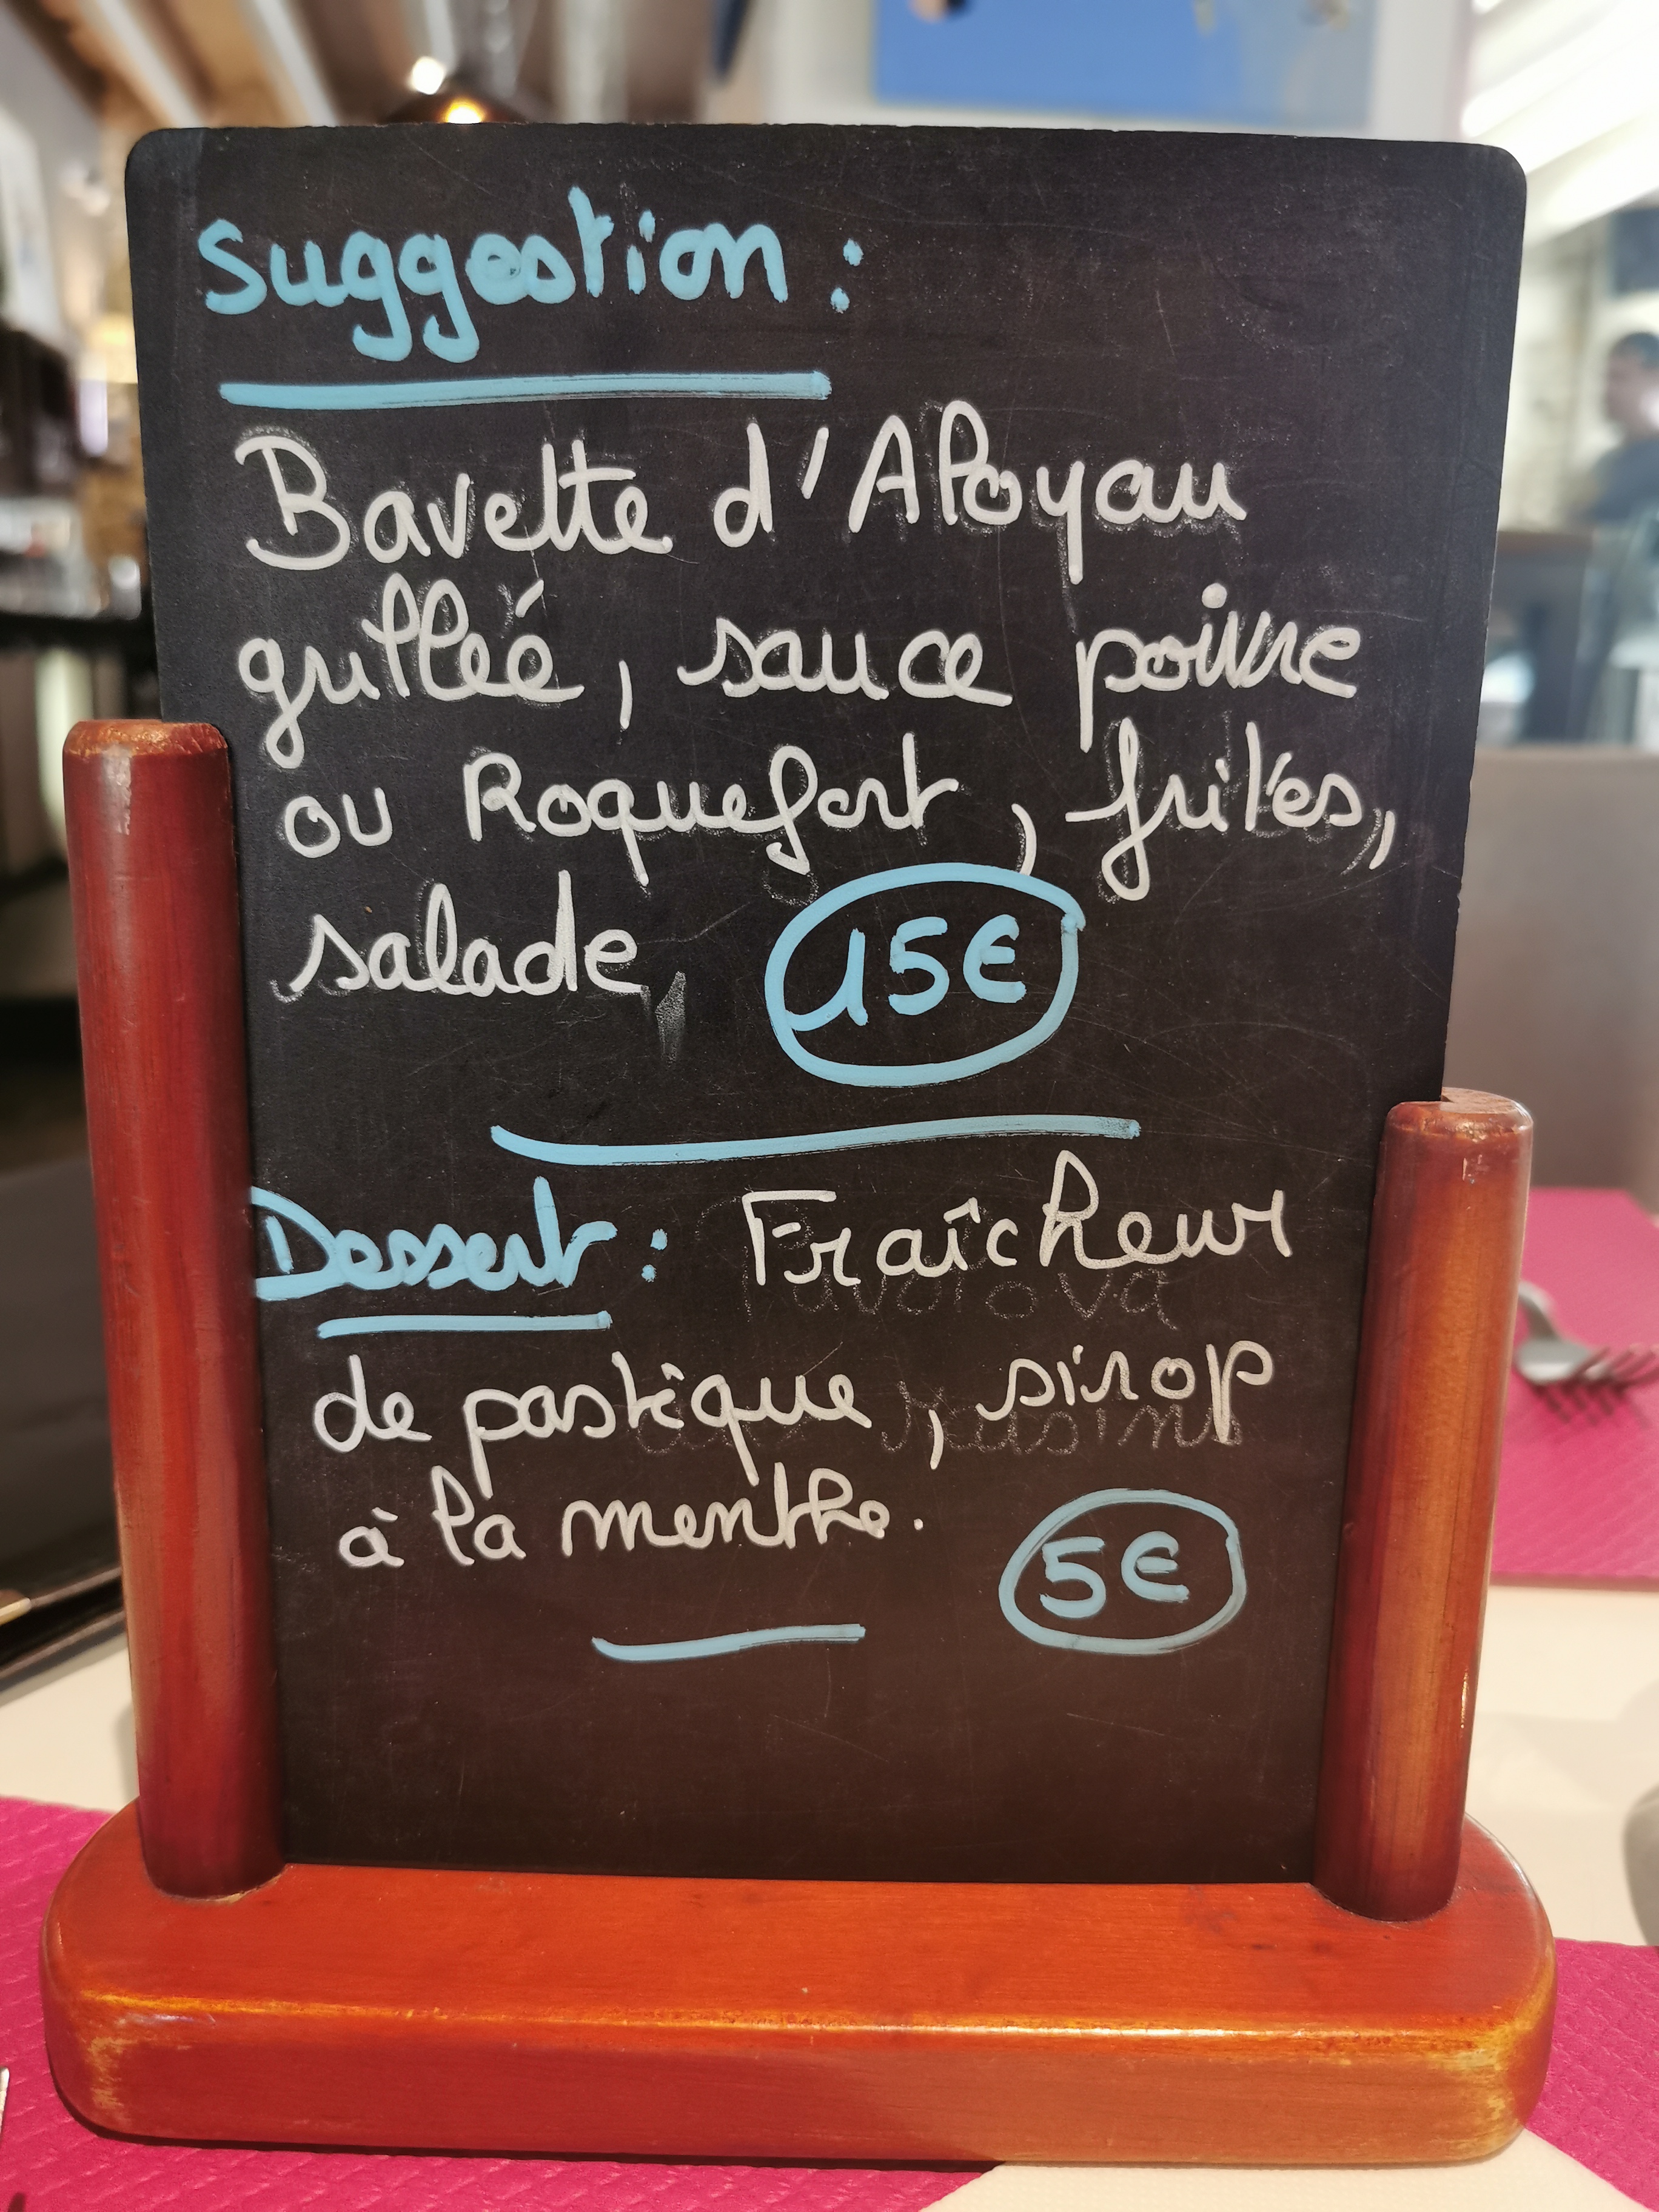 Suggestion :
Bavette d'Aloyau
grillée, sauce poivre
ou Roquefort, frites,
salade 15€
Dessert : Fraîcheur
de pastèque, sirop
à la menthe.
5€